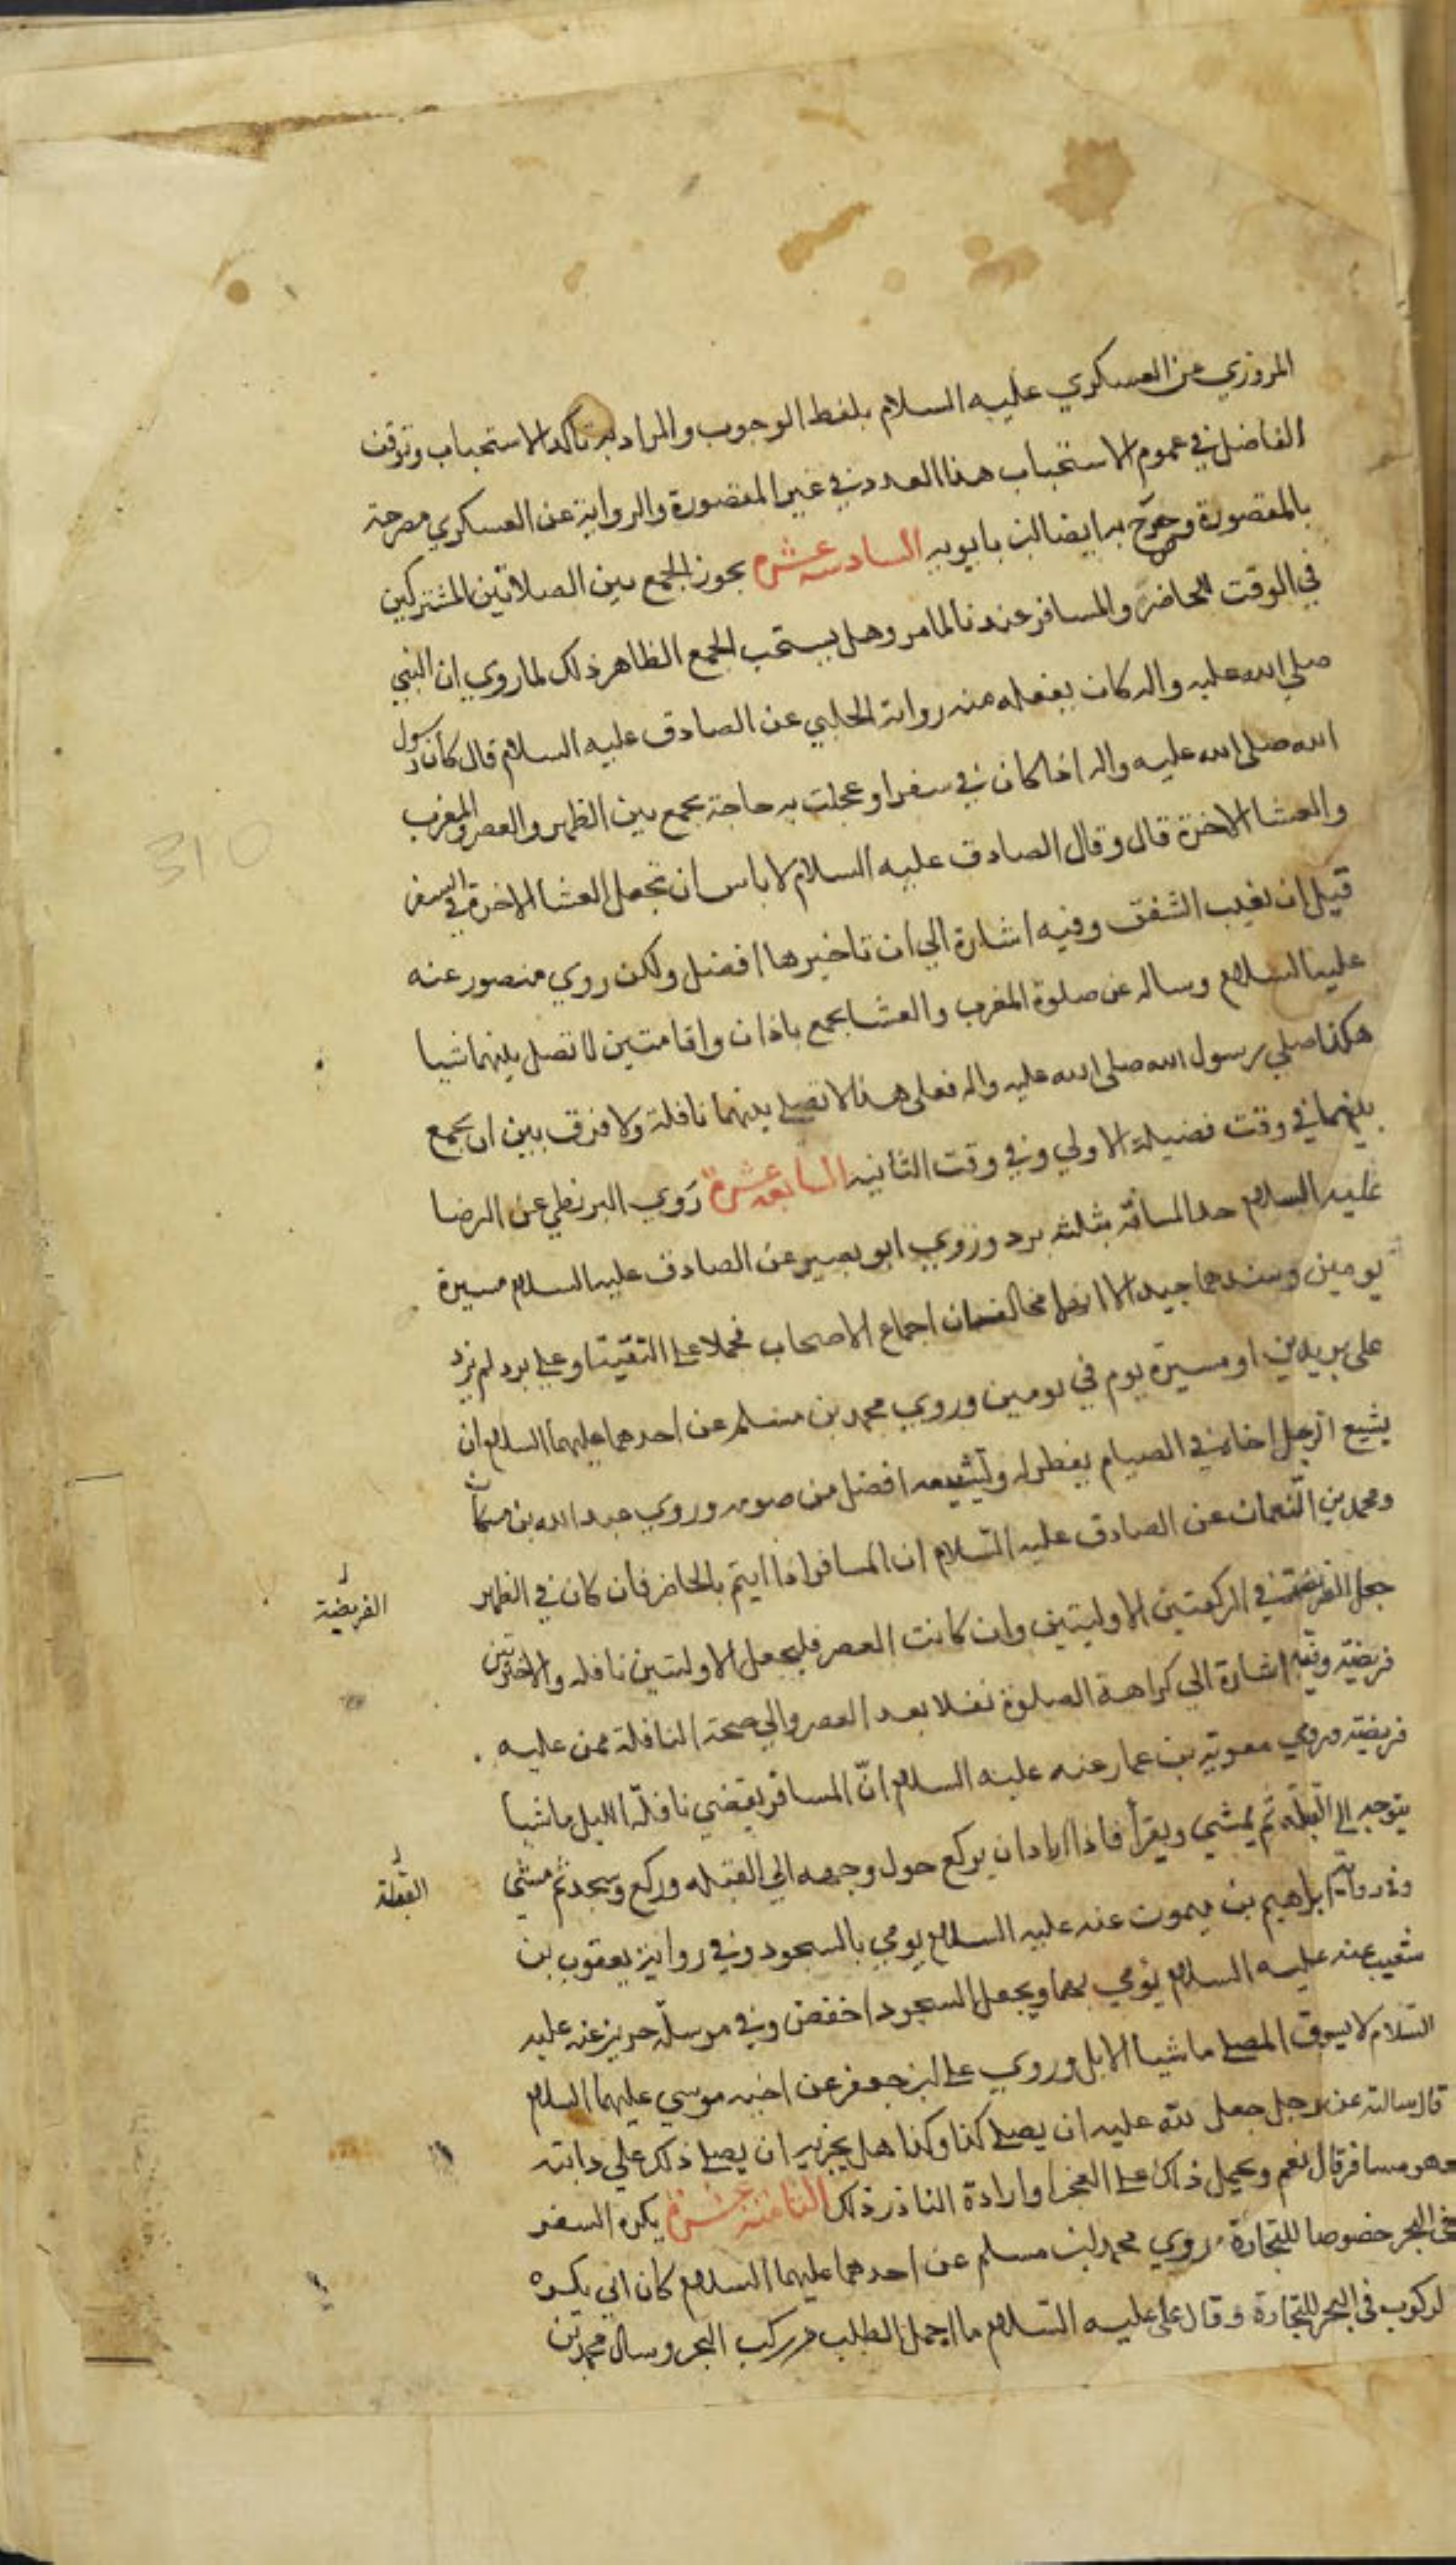 المروزي عن العسكري عليه السلام بلفظ الوجوب والمراد به تاكد الاستحباب وتوقف
الفاضل في عموم الاستحباب هذا العدد في غير المقصورة والرواية عن العسكري مصرحة
بالمقصورة وصرح به ايضا ابن بابويه السادسه عشرة يجوز الجمع بين الصلاتين المشتركين
في الوقت للحاضر والمسافر عندنا لما مر وهل يستحب الجمع الظاهر ذلك لما روي ان النبي
صلى الله عليه واله كان يفعله منه رواية الحلبي عن الصادق عليه السلام قال كان رسول
الله صلى الله عليه واله اذا كان في سفر او عجلت به حاجة يجمع بين الظهر والعصر والمغرب
والعشا الاخرة قال وقال الصادق عليه السلام لا باس ان تجعل العشا الاخرة في السفر
قبل ان تغيب الشفق وفيه اشارة الي ان تاخيرها افضل ولكن روي منصور عنه
عليه السلام وساله عن صلوة المغرب والعشا بجمع باذان واقامتين لا تصل بينهما شيا
هكذا صلي رسول الله صلى الله عليه واله فعلى هذا لا تصلي بينهما نافلة ولا فرق بين ان يجمع
بينهما في وقت فضيلة الاولي وفي وقت الثانيه السابعه عشرة روي البزنطي عن الرضا
عليه السلام حد المسافة بثلثه برد وروي ابو بصير عن الصادق عليه السلام مسيرة
يومين وسندهما جيد الا انهما مخالفان اجماع الاصحاب فحملا على التقية او على برد لم يزد
على بريدين او مسيرة يوم في يومين وروي محمد بن مسلم عن احدهما عليهما السلام ان
يشيع الرجل اخاه في الصيام يفطر له وتشييعه افضل من صومه وروي عبد الله بن مسكان
ومحمد بن النعمان عن الصادق عليه السلام ان المسافر اذا ايتم بالحاضر فان كان في الظهر
جعل الفريضة في الركعتين الاوليتين وان كانت العصر فليجعل الاولتين نافله والاخرتين
الفريضة
فريضة وفيه اشارة الي كراهة الصلوة نفلا بعد العصر والي صحة النافلة ممن عليه
فريضة وروي معوية بن عمار عنه عليه السلام ان المسافر يقضي نافلة الليل ماشيا
يتوجه الى القبلة ثم يمشي ويقرا فاذا اراد ان يركع حول وجهه الي القبله وركع وسجد ثم مشى
القبلة
وفي رواية ابراهيم بن ميمون عنه عليه السلام يومي بالسجود وفي رواية يعقوب بن
شعيب عنه عليه السلام يومي بهما ويجعل السجود اخفض وفي مرسلة حريز عنه عليه
السلام لا يسوق المصلي ماشيا الابل وروي على بن جعفر عن اخيه موسي عليهما السلام
قال سالته عن رجل جعل لله عليه ان يصلي كذا وكذا هل يجزيه ان يصلي ذلك علي دابته
وهو مسافر قال نعم ويحمل ذلك على العجز او ارادة الناذر ذلك الثامنه عشرة يكره السفر
في البحر خصوصا للتجارة روي محمد بن مسلم عن احدهما عليهما السلام كان ابي يكره
الركوب في البحر للتجارة وقال على عليه السلام ما اجمل الطلب من ركب البحر وسال محمد بن
310